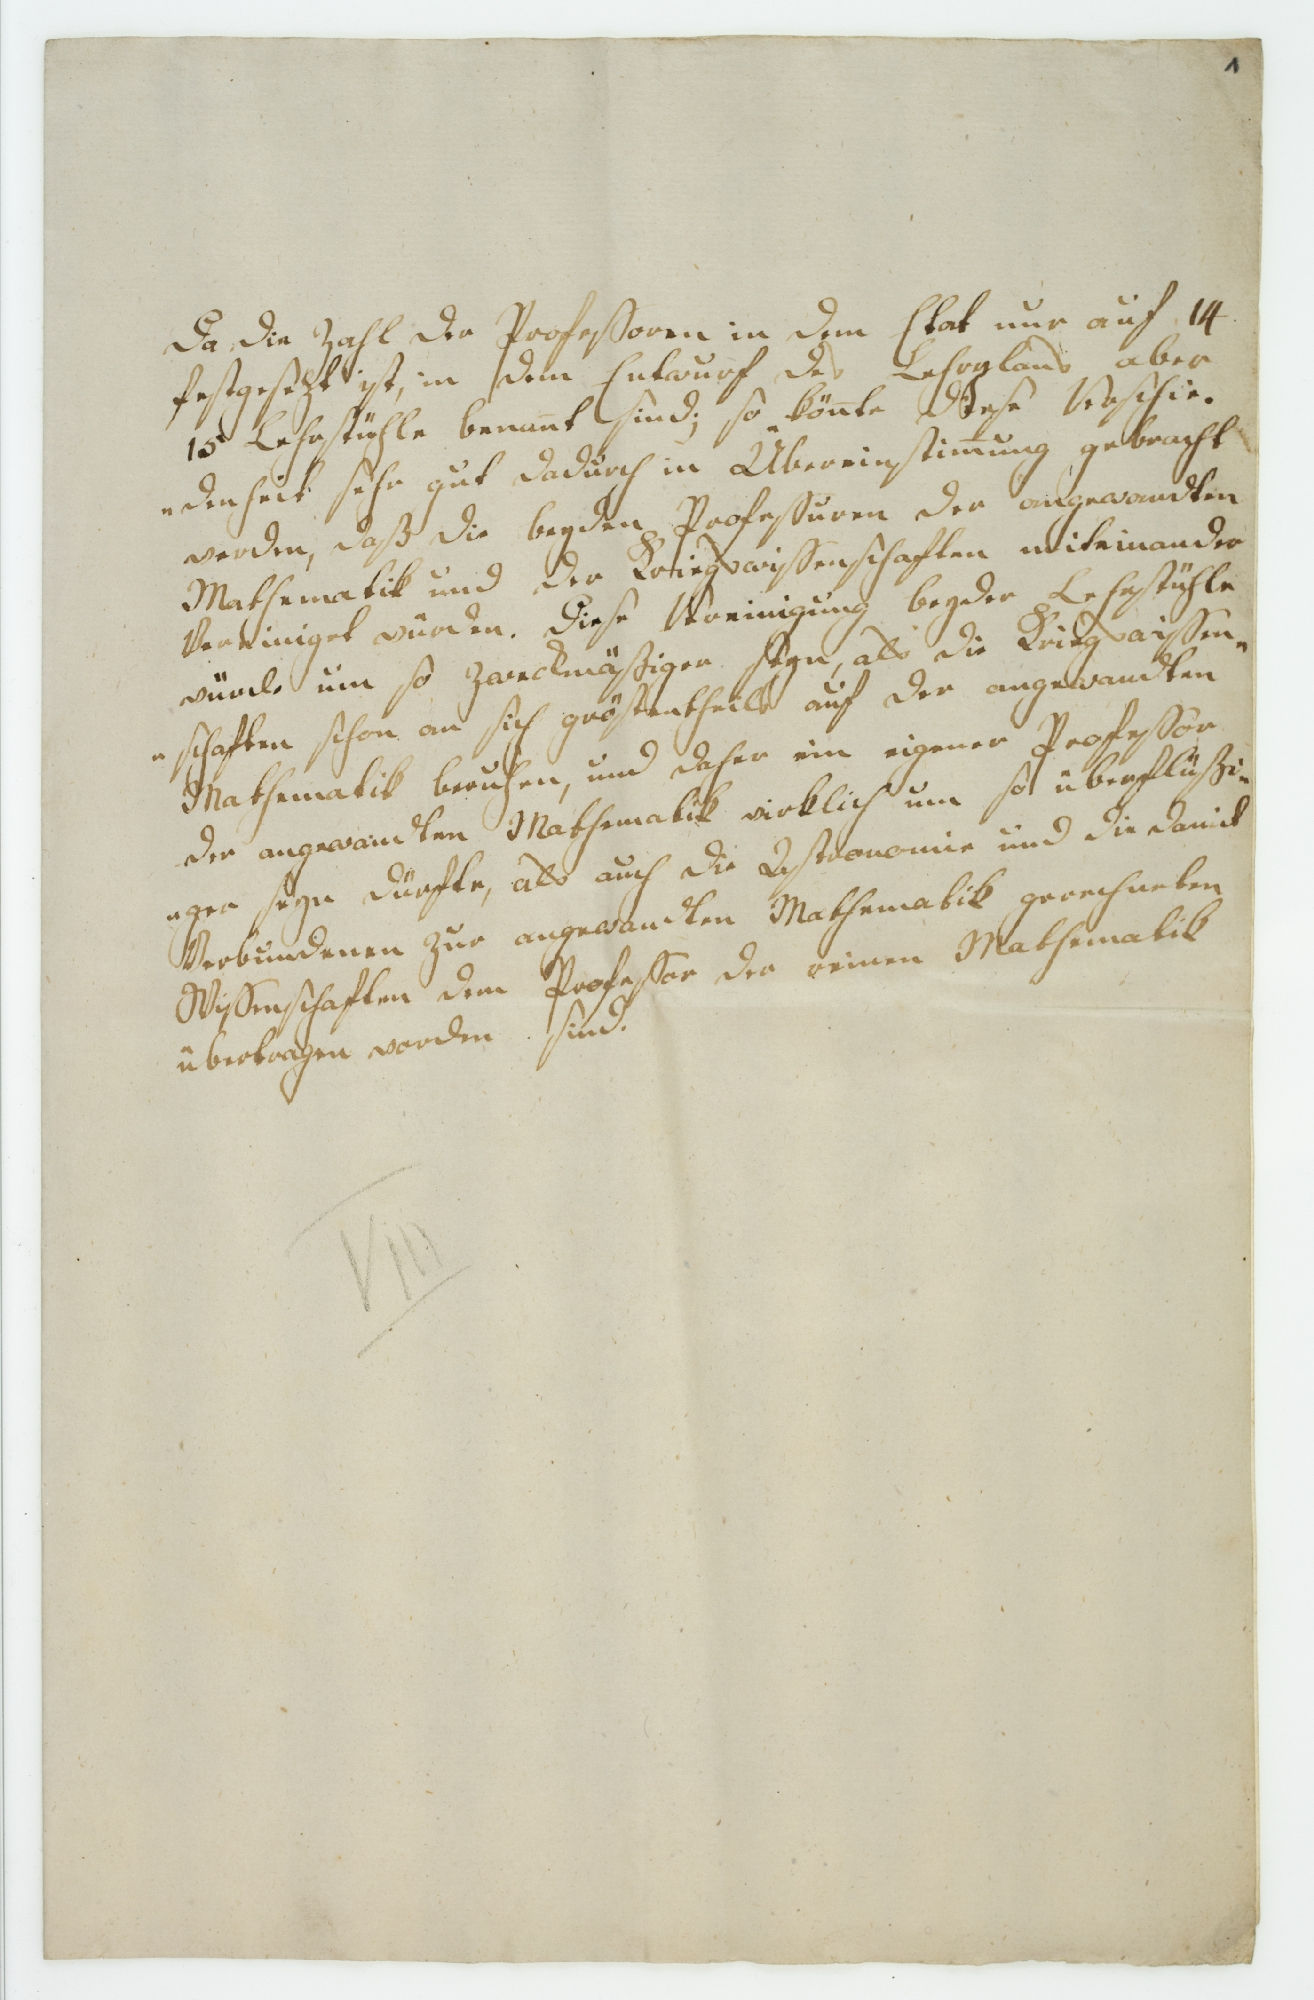 1
Da die Zahl der Professoren in dem Etat nur auf 14
festgesetzt ist, in dem Entwurf des Lehrplans aber
15 Lehrstühle benan̅t sind; so kön̅te diese Verschie-
„denheit sehr gut dadurch in Übereinstim̅ung gebracht
werden, daß die beyden Professuren der angewandten
Mathematik und der Kriegswissenschaften miteinander
Vereiniget würden. Diese Vereinigung beyder Lehrstühle
würde um so zweckmäßiger seyn, als die Kriegswissen„
„schaften schon an sich gröstentheils auf der angewandten
Mathematik beruhen, und daher ein eigener Professor
der angewandten Mathematik wirklich um so überflüßi„
„ger seyn dürfte, als auch die Astronomie und die damit
Verbundenen zur angewandten Mathematik gerechneten
Wissenschaften dem Professor der reinen Mathematik
übertragen worden sind.
VIII